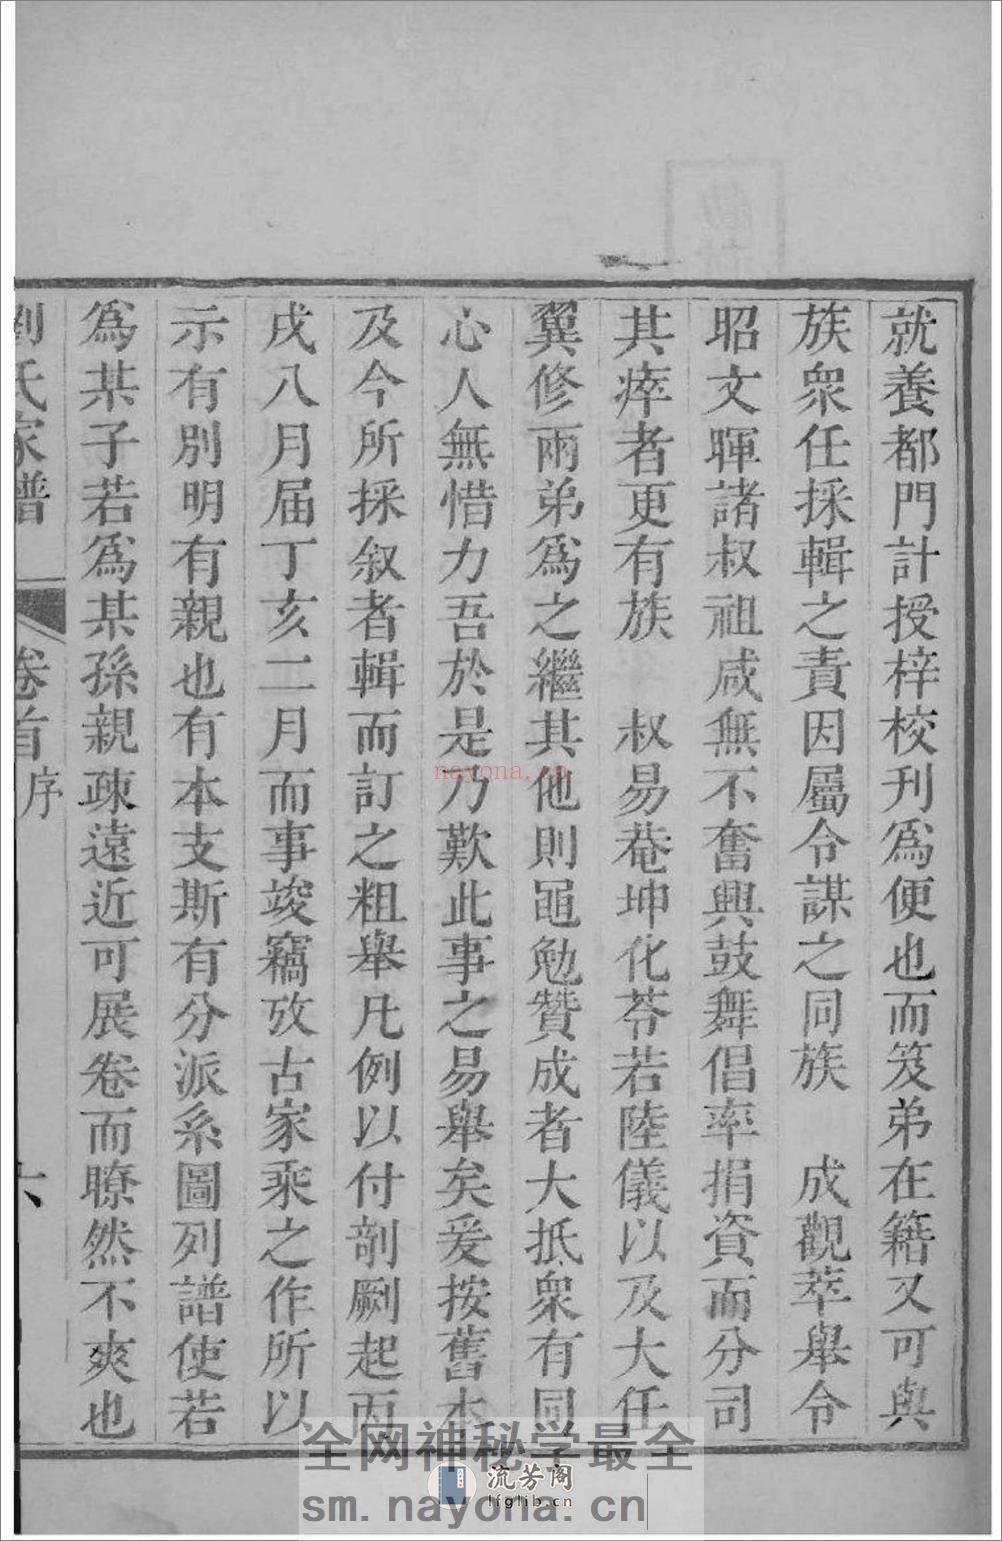 就養都門計授梓校刊爲便也而笈弟在籍又可與
族衆任採輯之責因屬令謀之同族　成觀萃舉令
昭文暉諸叔祖咸無不奮興鼓舞倡率捐資而分司
其瘁者更有族　叔易菴坤化苓若陸儀以及大任
翼修兩弟爲之繼其他則黽勉贊成者大抵衆有同
心人無惜力吾於是乃歎此事之易舉矣爰按舊本
及今所採叙者輯而訂之粗舉凡例以付剞劂起丙
戌八月届丁亥二月而事竣竊攷古家乘之作所以
示有別明有親也有本支斯有分派系圖列譜使若
爲某子若爲某孫親疎遠近可展卷而瞭然不爽也
劉氏家譜　卷首　序　六
nayona.cn
全网神秘学最全
流芳阁
lfglib.cn
sm.nayona.cn